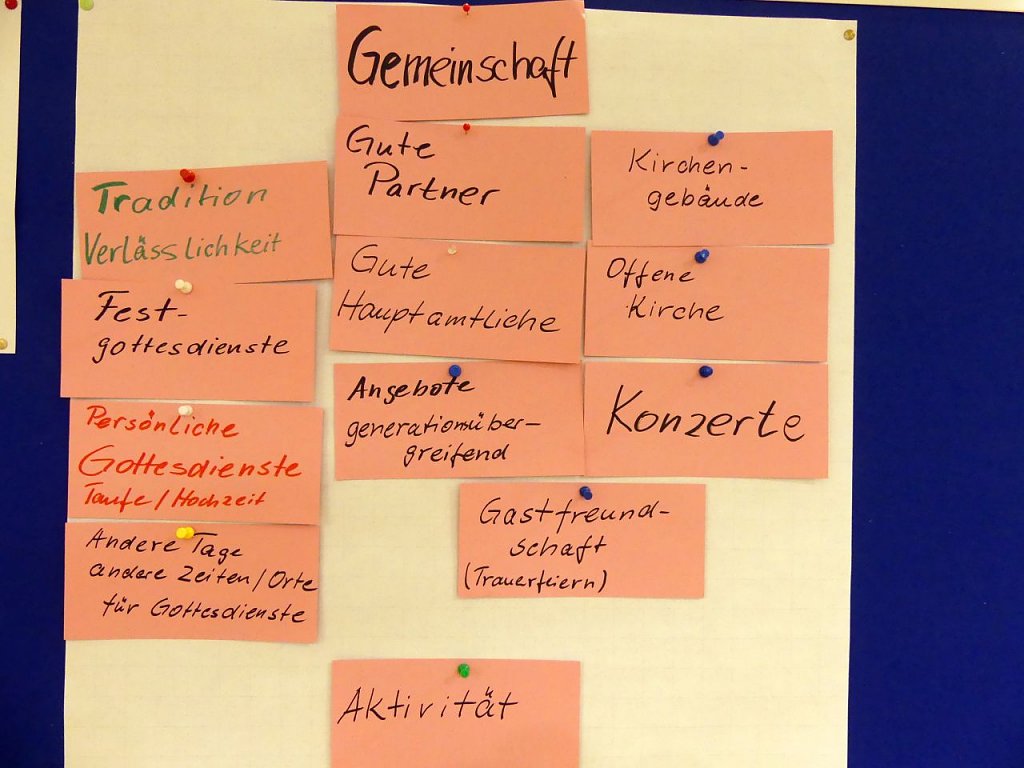 Gemeinschaft
Tradition
Verlässlichkeit
Fest-
gottesdienste
Persönliche
Gottesdienste
Taufe / Hochzeit
Andere Tage
andere Zeiten / Orte
für Gottesdienste
Gute
Partner
Gute
Hauptamtliche
Angebote
generationsüber-
greifend
Kirchen-
gebäude
Offene
Kirche
Konzerte
Gastfreund-
schaft
(Trauerfeiern)
Aktivität